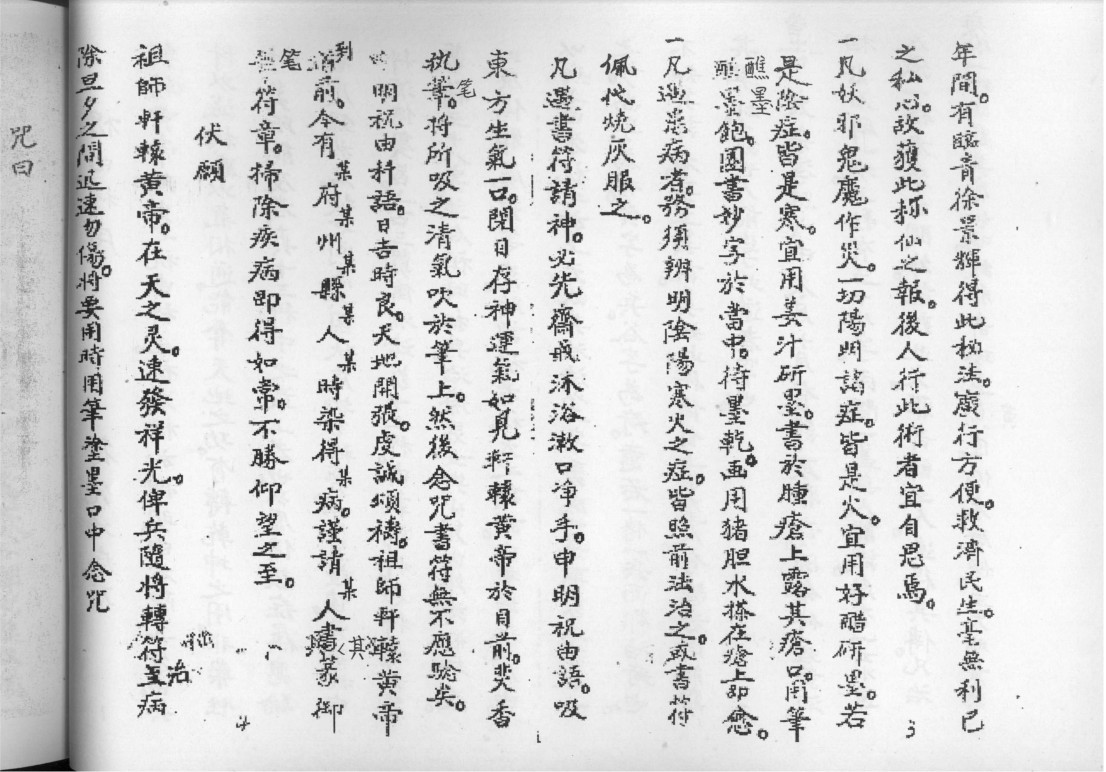 年間。有臨青徐景輝得此秘法。廣行方便。救濟民生。毫無利己
之私心。故獲此極仙之報。後人行此術者宜自思焉。
3
一凡妖邪鬼魔作災。一切陽明諸症。皆是火。宜用好醋研墨。若
是陰症。皆是寒。宜用姜汁研墨。書於腫瘡上露其瘡口。用筆
蘸墨飽。圈書妙字於當中。待墨乾。再用猪胆水搽在瘡上即愈。
蘸墨
一凡遇患病者。務須辨明陰陽寒火之症。皆照前法治之。或書符
佩代燒灰服之。
凡遇書符請神。必先齋戒沐浴漱口净手。申明祝由語。吸
東方生氣一口。閉目存神運氣如見軒轅黃帝於目前。焚香
执筆。将所吸之清氣吹於筆上。然後念咒書符無不應驗矣。
笔
明祝由科語。日吉時良。天地開張。虔誠頌禱。祖師軒轅黃帝
到 前。今有某府某州某縣某人某時染得某病。謹請某人書篆御
其
笔 符章。掃除疾病即得如常。不勝仰望之至。
4
伏願
祖師軒轅黃帝。在天之灵。速發祥光俾兵隨將轉符 病
治
除旦夕之間迅速勿傷。将要用時用筆塗墨口中念咒
咒曰